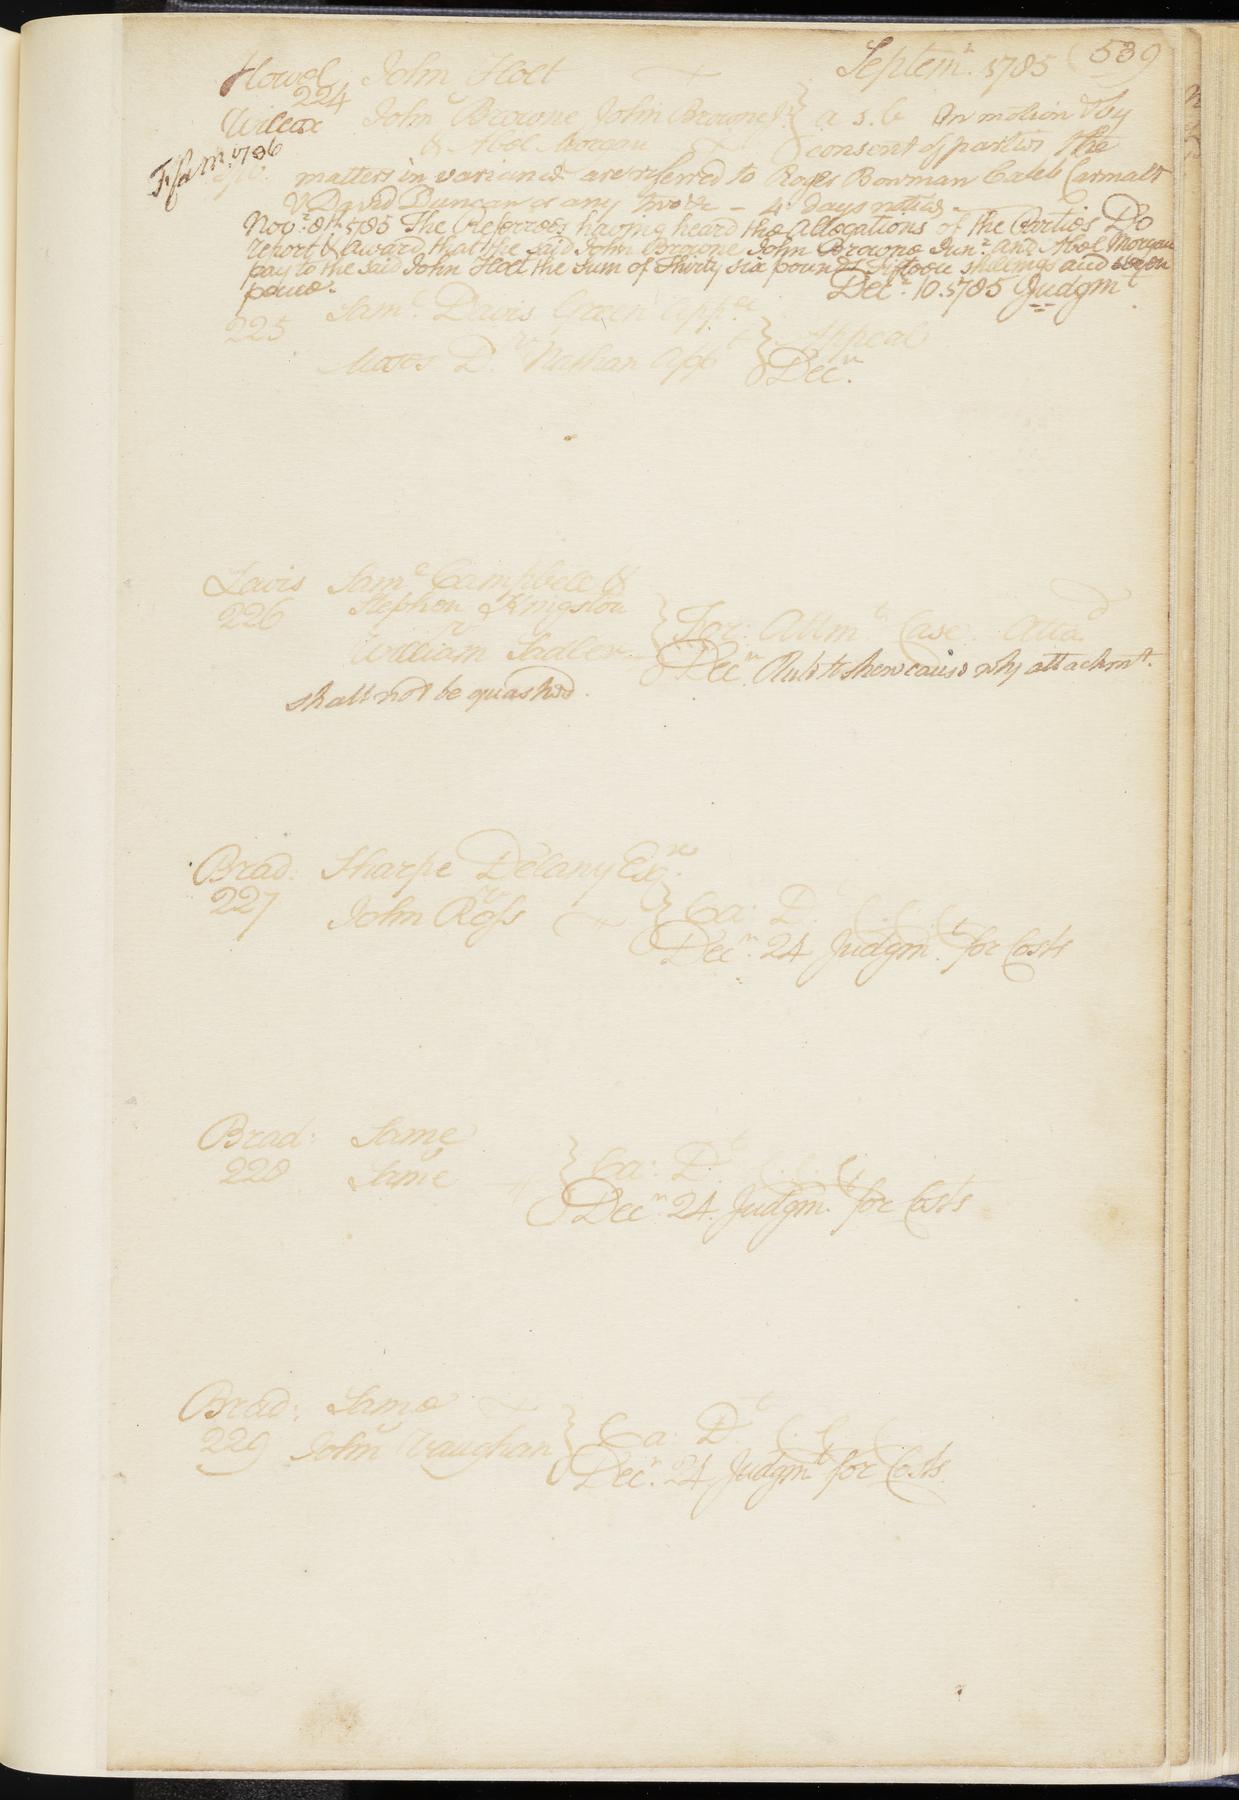 Septemr. 1785 (539
Howel John Holt
224
Wilcox John Browne John Browne Jr } a s. b On motion & by
& Abel Morgan consent of parties the
Fi fa m 1786
matters in variance are referred to Roger Bowman Caleb Carmalt
& David Duncan or any two &c - 4 days notice.
Novr. 8th 1785 The Referrees having heard the Allegations of the Parties Do
report & award that the said John Browne John Browne Junr and Abel Morgan
pay to the said John Holt the sum of Thirty six pounds fifteen shillings and seven
pence. Decr. 10. 1785 Judgmt.
225 Saml Davis Green Appee } Appeal
Moses D. Nathan Appt Decr.
Lewis Saml Campbell &
226 Stephen Kingston
William Sadler } For: Attmt Case Atta
Decr. Rule to shew cause why attachmt.
shall not be quashed.
Brad: Sharpe Delany Esqr.
227 John Ross } Ca: Dt
Decr. 24 Judgmt. for Costs
Brad: Same
228 Same } Ca: Dt
Decr. 24. Judgmt. for Costs
Brad: Same
229 John Vaughan } Ca: Dt
Decr. 24 Judgmt for Costs